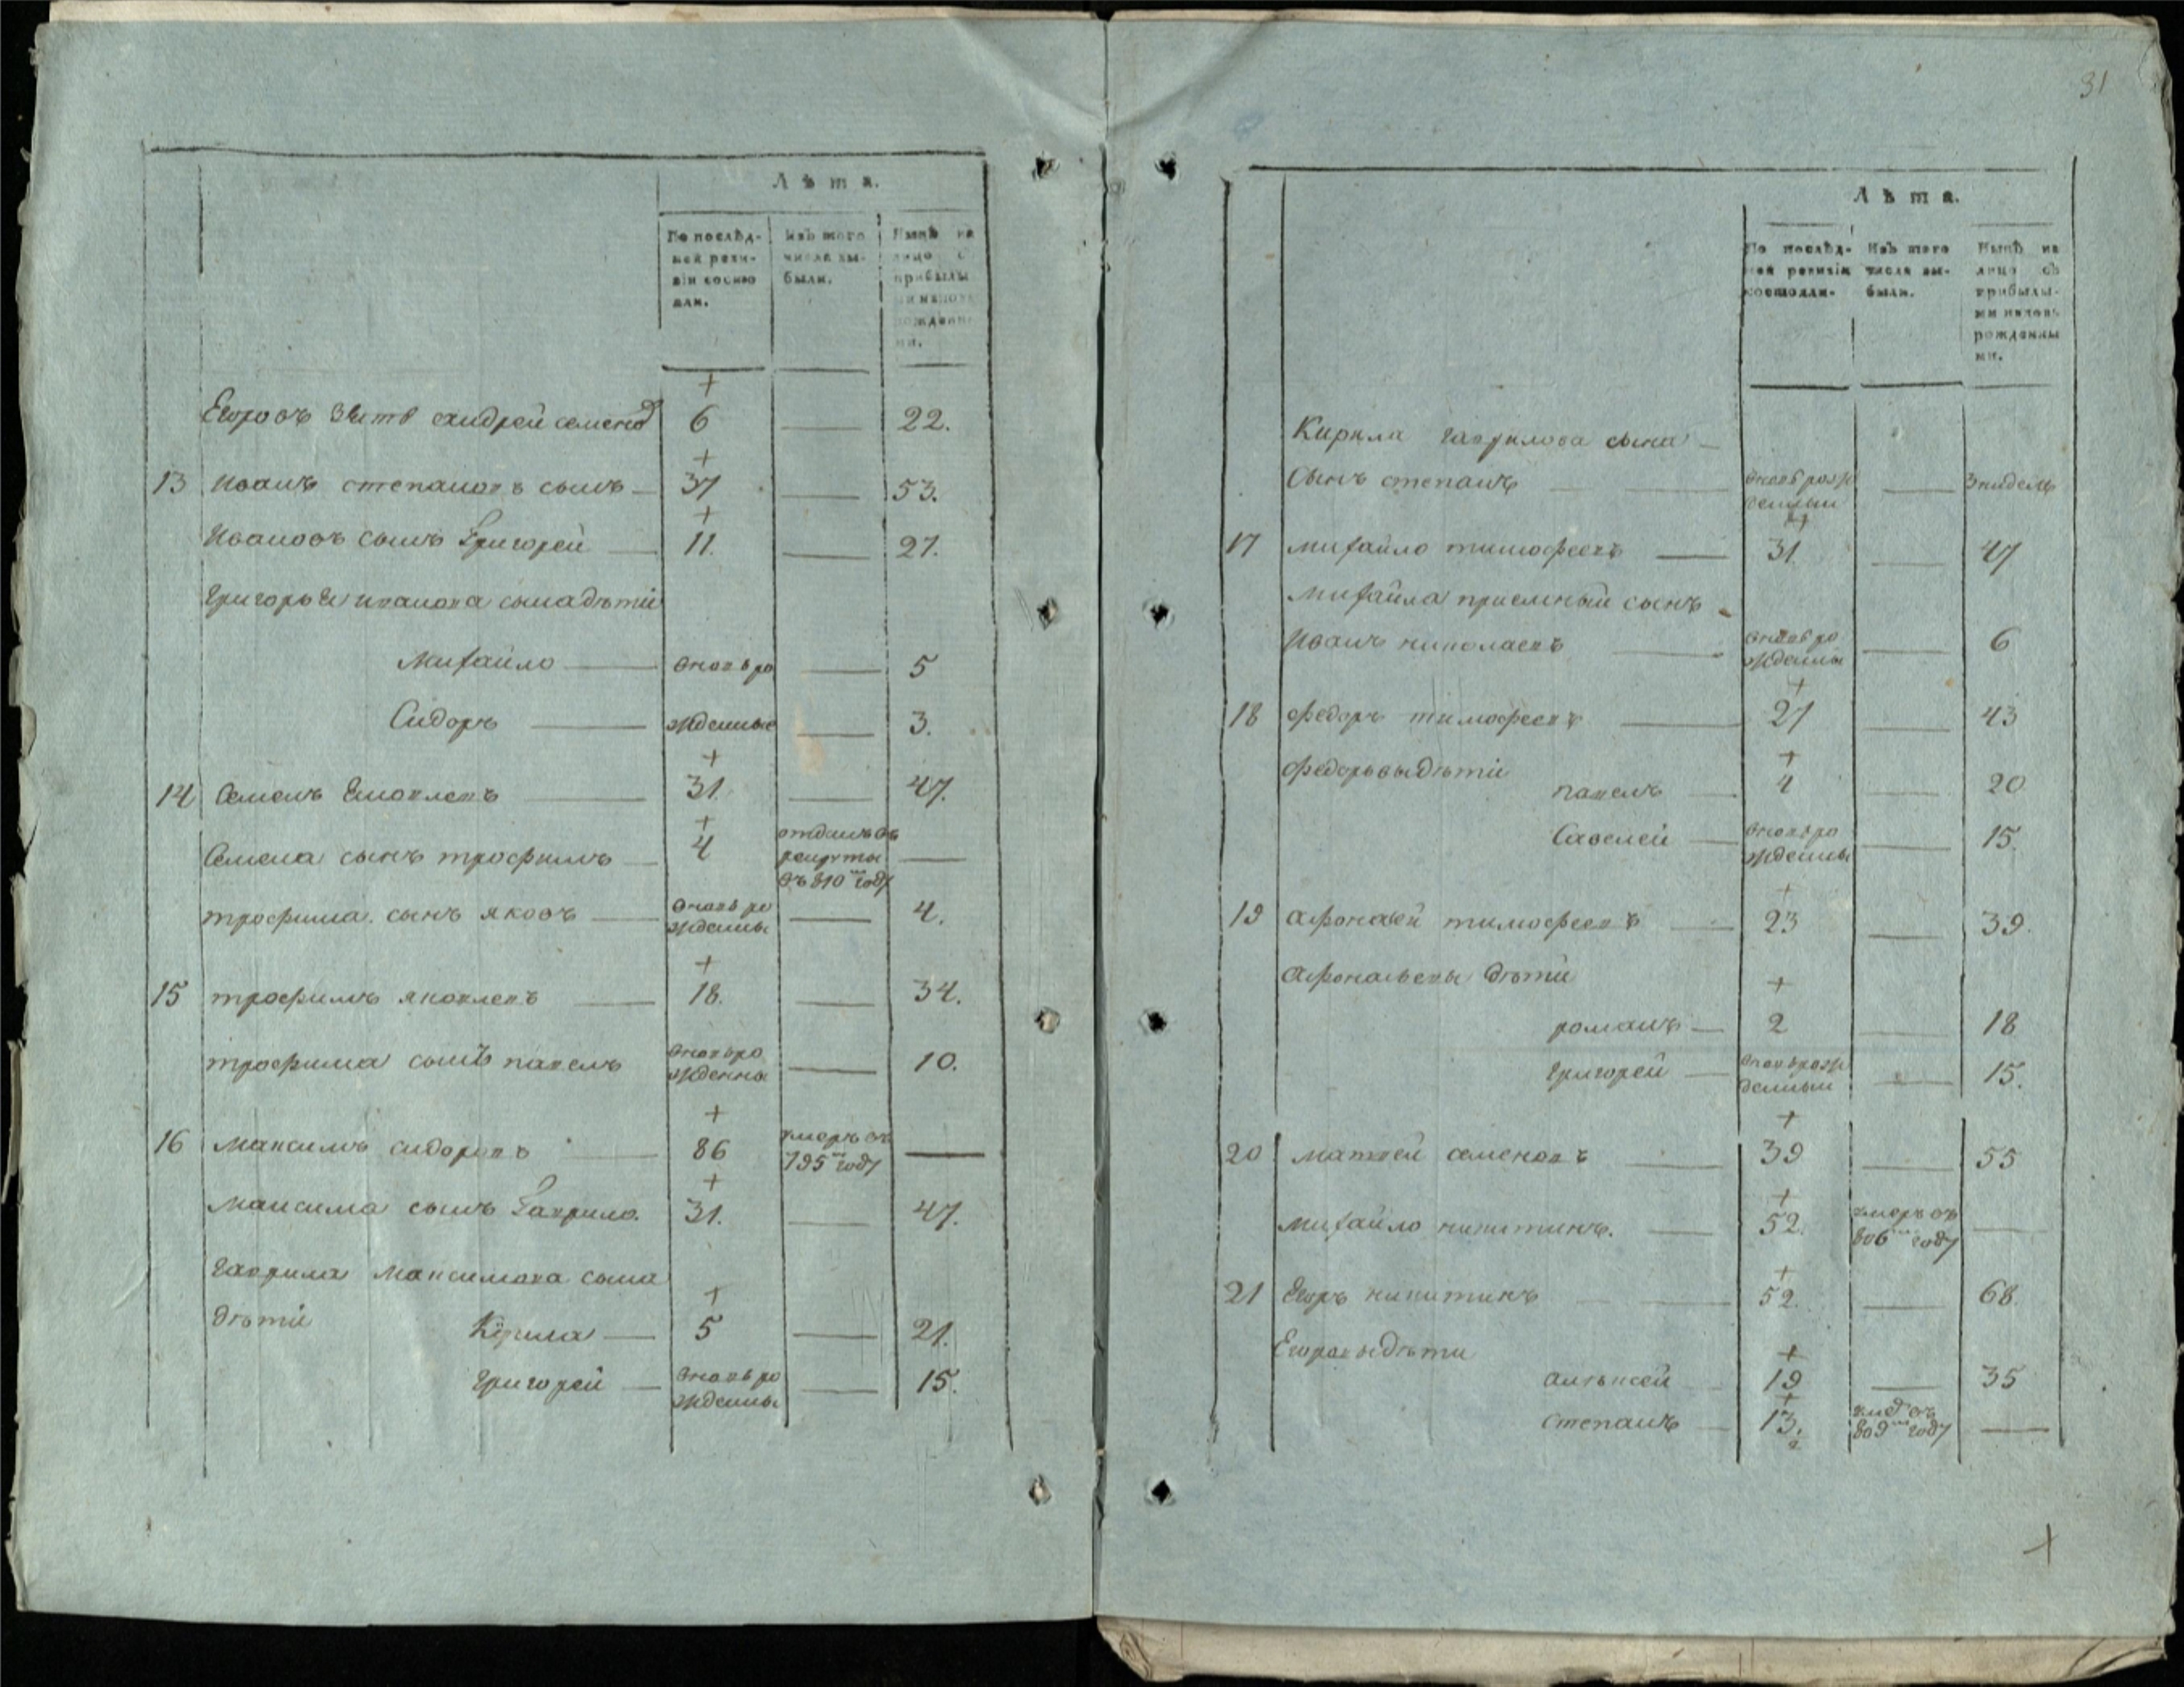 Лѣта.
По послѣд-
ней реви-
зіи состо
яли.
Изъ того
числа вы-
были.
Нынѣ на
лицо с
прибылы
ми и новъ
рожденн
ми.
Егоровъ зять андрей семенов 6 — 22.
13 Иванъ степановъ сынъ — 37 — 53.
Ивановъ сынъ Григорей — 11. — 27.
Григорья иванова сына дѣти
михайло — вновь ро — 5
Сидоръ — жденные — 3.
14 Семенъ — 31. — 47.
Семена сынъ трофимъ — 4 отданъ въ
рекруты —
въ 810м году
трофима сынъ яковъ — вновь ро
жденны — 4.
15 трофимъ яковлевъ — 18. — 34.
трофима сынъ павелъ вновь ро
жденны — 10.
16 максимъ сидоровъ — 86 умеръ въ
795м году —
максима сынъ Гаврило. 31. — 47.
гаврила максимова сына
дѣти Кирила — 5 — 21.
григорей — вновь ро
жденны — 15.
31
Лѣта.
По послѣд-
ней ревизіи
состояли.
Изъ того
числа вы-
были.
Нынѣ на
лицо съ
прибылы-
ми и новъ
рожденны
ми.
Кирила гаврилова сына —
Сынъ степанъ — вновь рож
денныи — 3 недель
17 михайло тимофеевъ — 31. — 47
михайла приемный сынъ
Иванъ николаевъ — вновь ро
жденны — 6
18 федоръ тимофеевъ — 27 — 43
федоровы дѣти
павелъ — 4 — 20
Савелей — вновь ро
жденны — 15.
19 афонасей тимофеевъ — 23 — 39.
афонасьевы дѣти
романъ — 2 — 18
григорей — вновь рож
денныи — 15.
20 матвей семеновъ — 39 — 55
михайло никитинъ. — 52. умеръ въ
806м году —
21 Егоръ никитинъ — 52. — 68.
Егоровы дѣти
алѣксей — 19 — 35
степанъ — 13. въ
809м году —